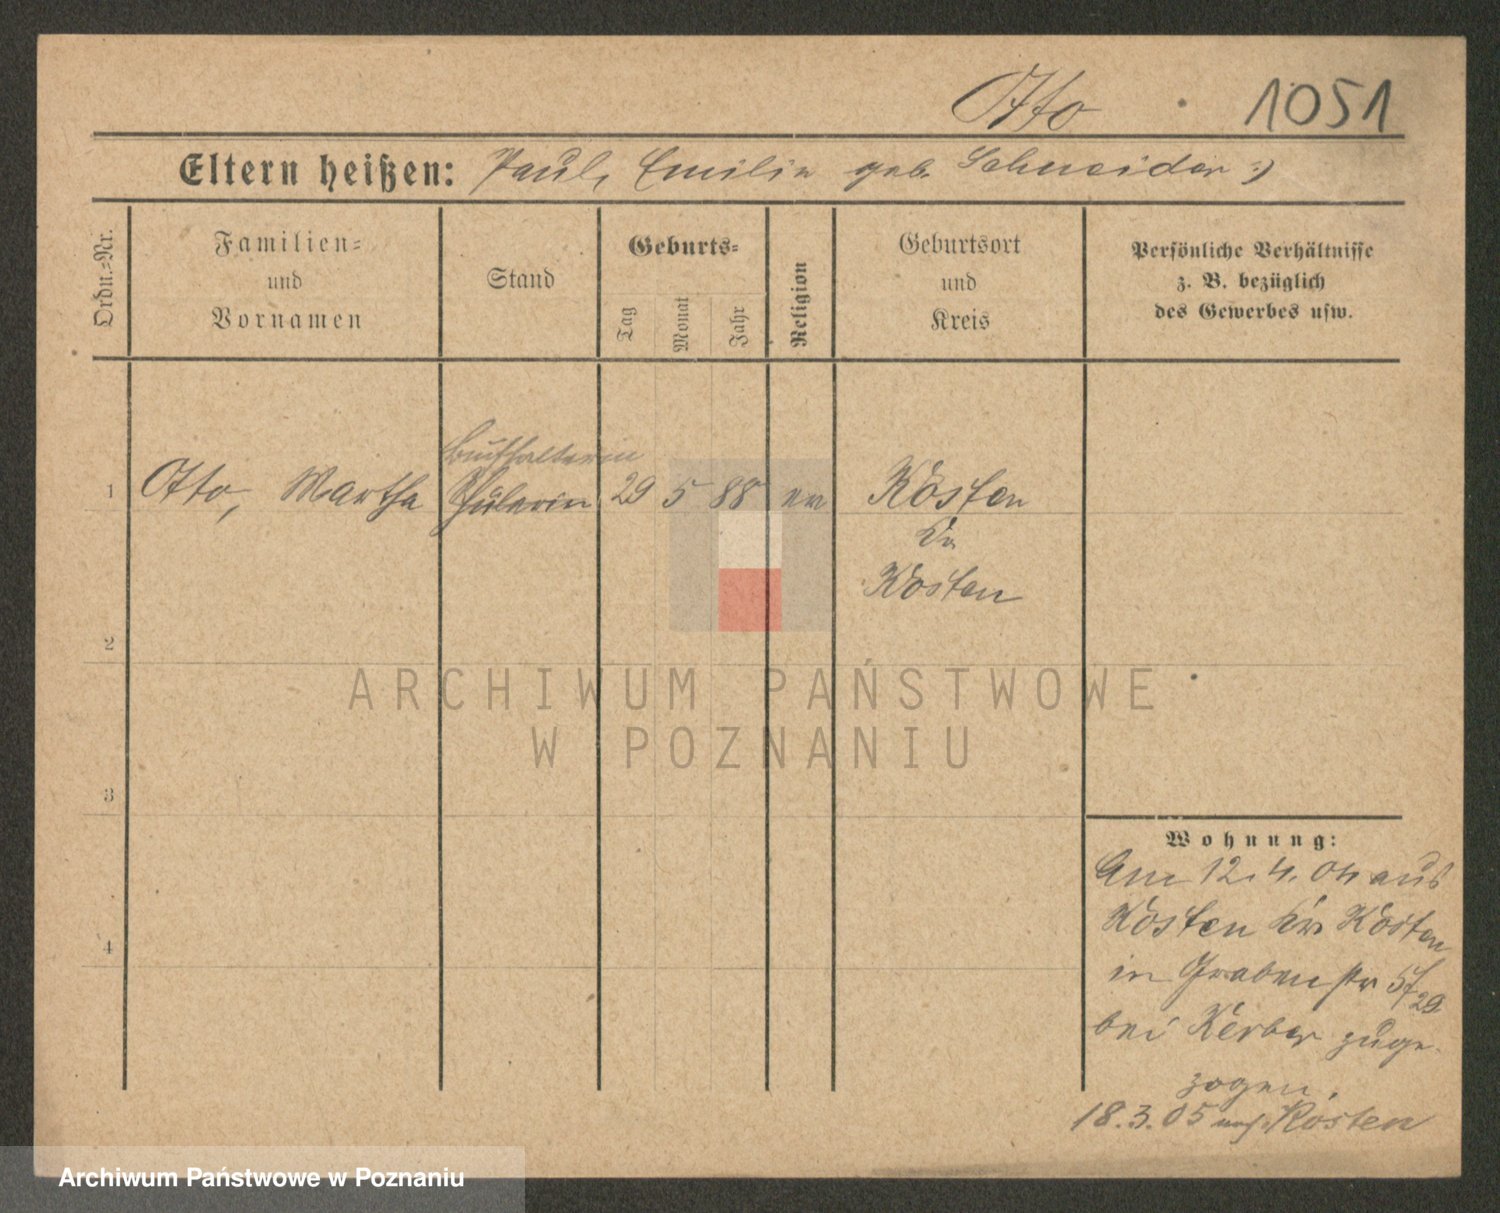 Otto 1051
Eltern heißen: Paul, Emilie geb. Schneider :)
Ordn.=Nr.
Familien=
und
Vornamen
Stand
Geburts=
Tag
Monat
Jahr
Religion
Geburtsort
und
Kreis
Persönliche Verhältnisse
z. B. bezüglich
des Gewerbes usw.
Buchhalterin
1 Otto, Martha Schülerin 29 5 88 ev Kosten
Kr
Kosten
2
3
4
Wohnung:
Am 12.4.04 aus
Kosten Kr Kosten
in Grabenstr
bei Kerber zuge-
zogen.
18.3.05 nach Kosten
ARCHIWUM PAŃSTWOWE
W POZNANIU
Archiwum Państwowe w Poznaniu